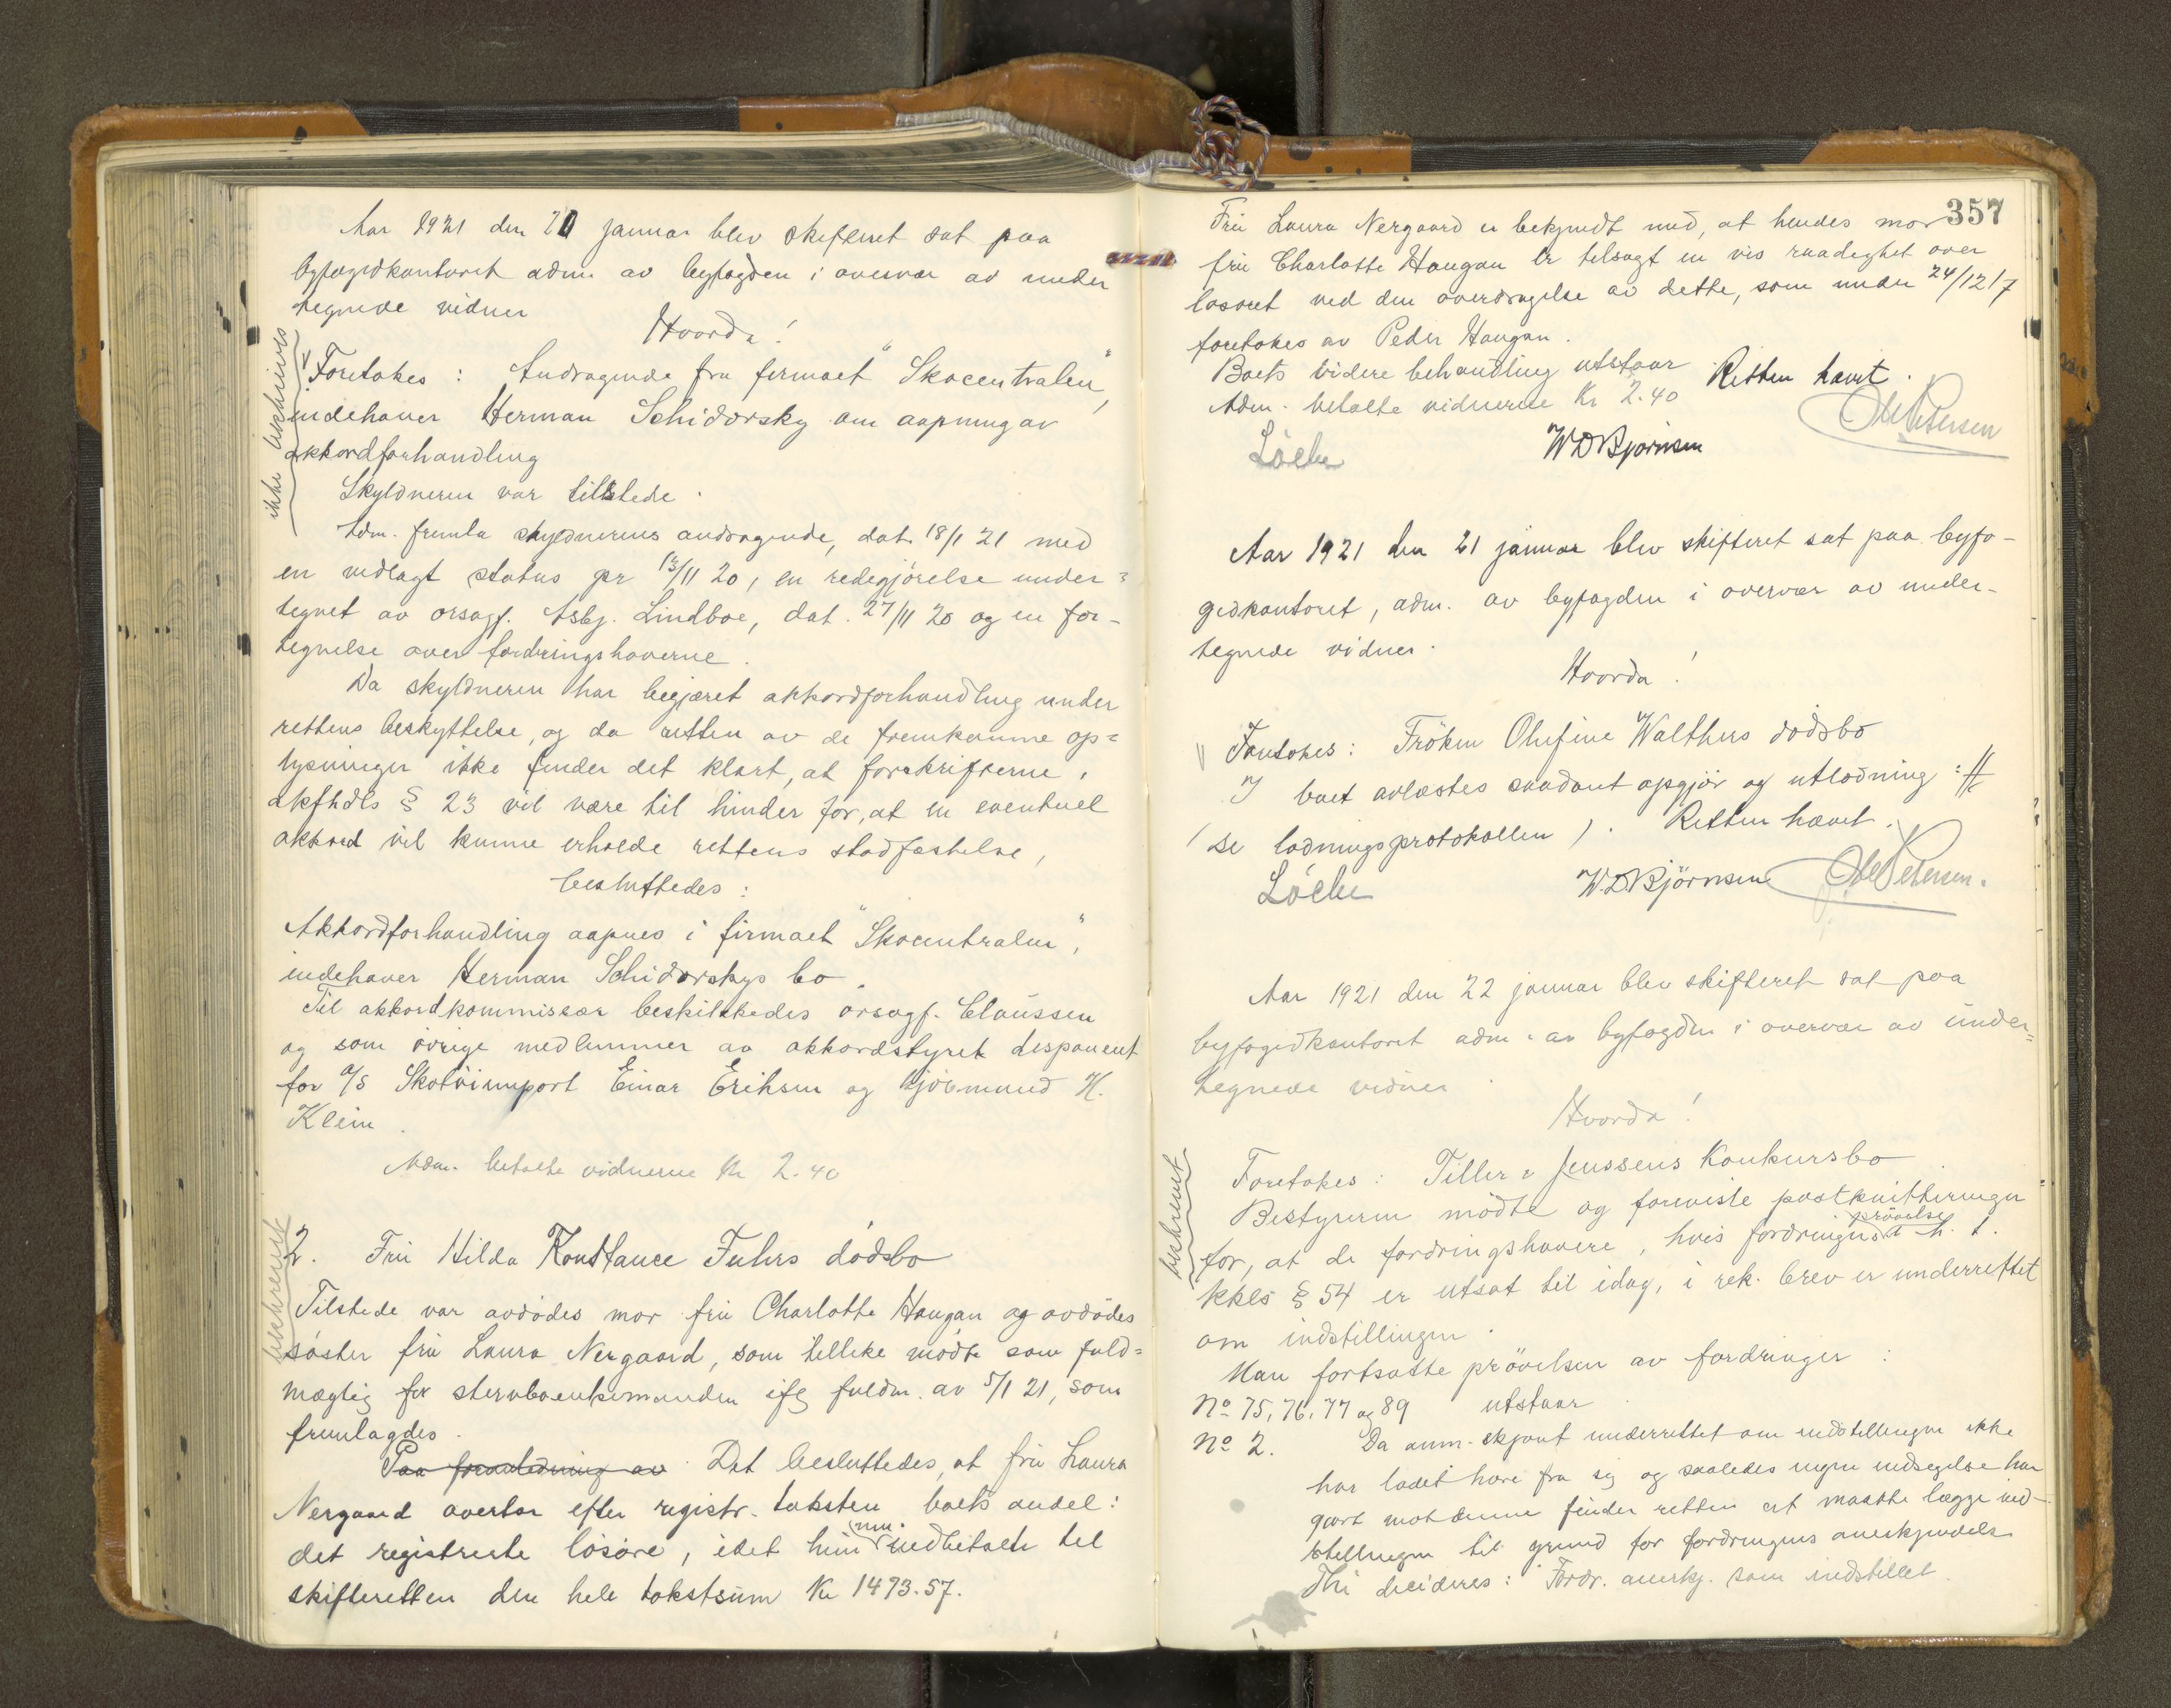 Aar 1921 den 20 januar blev skifteret sat paa
byfogedkontoret adm av byfogden i overvær av under
tegnede vidner
Hvorda!
ikke beskrives
1. Foretokes: Andragende fra firmaet "Skocentralen",
indehaver Herman Schidorsky om aapning av
akkordforhandling
Skyldneren var tilstede.
Adm. fremla skyldnerens andragende, dat. 18/1 21 med
en vedlagt status pr 13/11 20, en redegjörelse under=
tegnet av orsagf. Asbj. Lindboe, dat. 27/11 20 og en for-
tegnelse over fordringshaverne.
Da skyldneren har begjæret akkordforhandling under
rettens beskyttelse, og da retten av de fremkomne op=
lysninger ikke finder det klart, at forskrifterne i
akfhdls § 23 vil være til hinder for, at en eventuel
akkord vil kunne erholde rettens stadfæstelse,
besluttedes:
Akkordforhandling aapnes i firmaet "Skocentralen",
indehaver Herman Schidorskys bo.
Til akkordkommissær beskikkedes orsagf. Claussen
og som övrige medlemmer av akkordstyret disponent
for A/S Skotöiimport Einar Eriksen og kjöbmand H.
Klein.
Adm. betalte vidnerne Kr 2.40
beskrevet
2. Fru Hilda Konstance Fuhrs dödsbo
Tilstede var avdödes mor fru Charlotte Haugan og avdödes
söster fru Laura Nergaard, som tillike mödte som fuld=
mægtig for stervboenkemanden ifg fuldm. av 5/1 21, som
fremlagdes.
Paa foranledning av Det besluttedes, at fru Laura
Nergaard overtar efter registr. taksten boets andel:
det registrerte lösöre, idet hun nu indbetaler til
skifteretten den hele takstsum Kr 1473.57.
357
Fru Laura Nergaard er bekjendt med, at hendes mor
fru Charlotte Haugan er tilsagt en vis raadighet over
lösöret ved den overdragelse av dette, som under 24/12 17
foretokes av Peder Haugan.
Boets videre behandling utstaar Retten hævet.
Adm. betalte vidnerne Kr 2.40
Löche W D Björnsen Ole Petersen
Aar 1921 den 21 januar blev skifteret sat paa byfo-
gedkontoret, adm. av byfogden i overvær av under-
tegnede vidner.
Hvorda!
Foretokes: Fröken Olufine Walthers dödsbo
I boet avlæstes saadant opgjör og utlodning: #
(se lodningsprotokollen). Retten hævet.
Löche W.D Björnsen Ole Petersen.
Aar 1921 den 22 januar blev skifteret sat paa
byfogedkontoret adm. av byfogden i overvær av under=
tegnede vidner.
Hvorda!
beskrevet
Foretokes: Tiller & Jenssens Konkursbo
Bestyreren mödte og foreviste postkvitteringer
for, at de fordringshavere, hvis fordringers prövelse i h. t.
kkls § 54 er utsat til idag, i rek. brev er underrettet
om indstillingen.
Man fortsatte prövelsen av fordringer:
No 75, 76, 77 og 89 utstaar
No 2. Da anm. skjönt underrettet om indstillingen ikke
har ladet höre fra sig og saaledes ingen indsigelse har
gjort mot denne finder retten at maatte lægge ind-
stillingen til grund for fordringens anerkjendelse
Thi decideres: Fordr. anerkj. som indstillet.